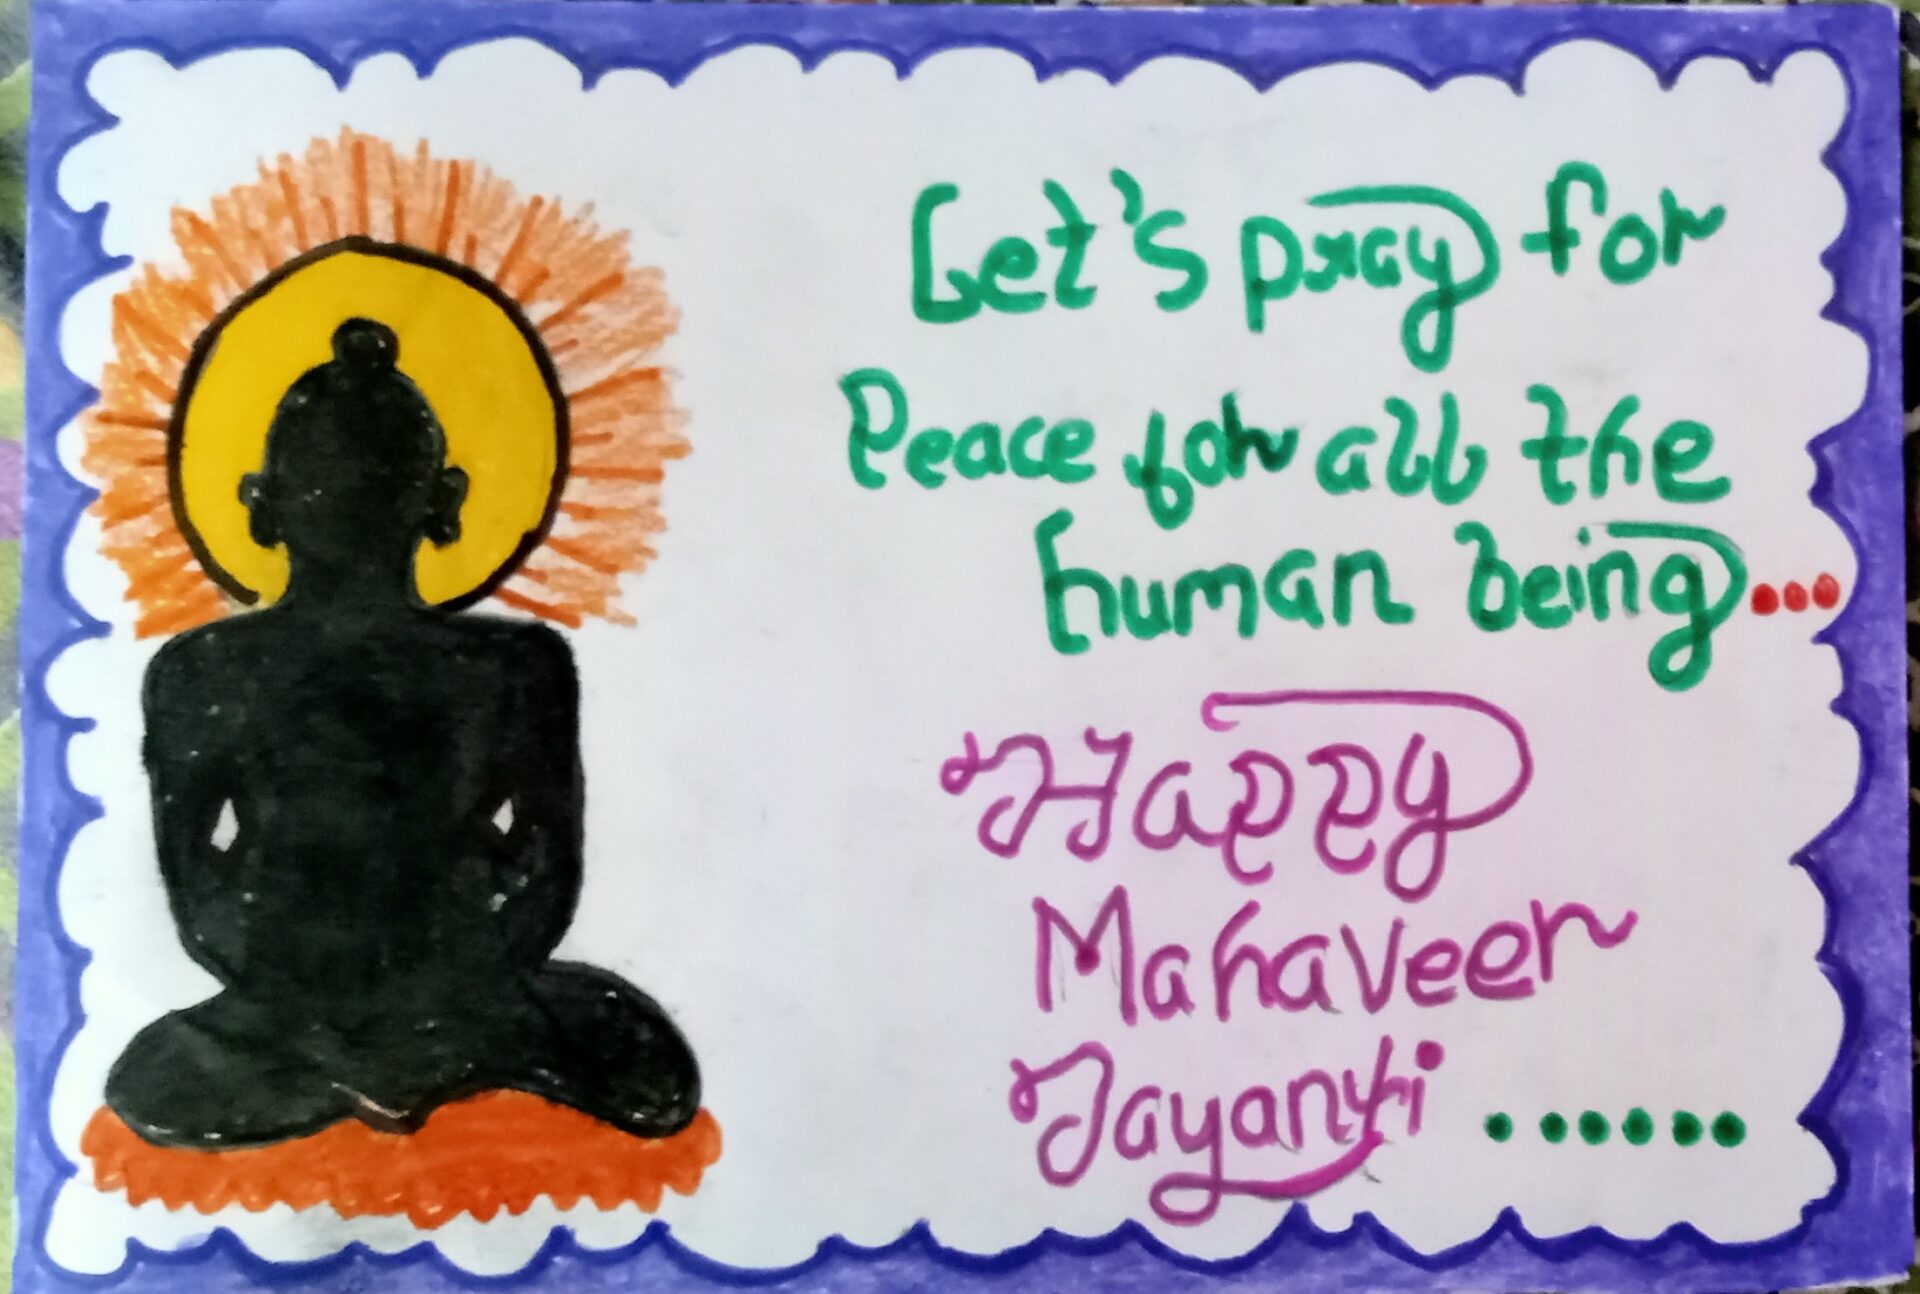 Let's pray for
Peace for all the
human being...
Happy
Mahaveer
Jayanti ......